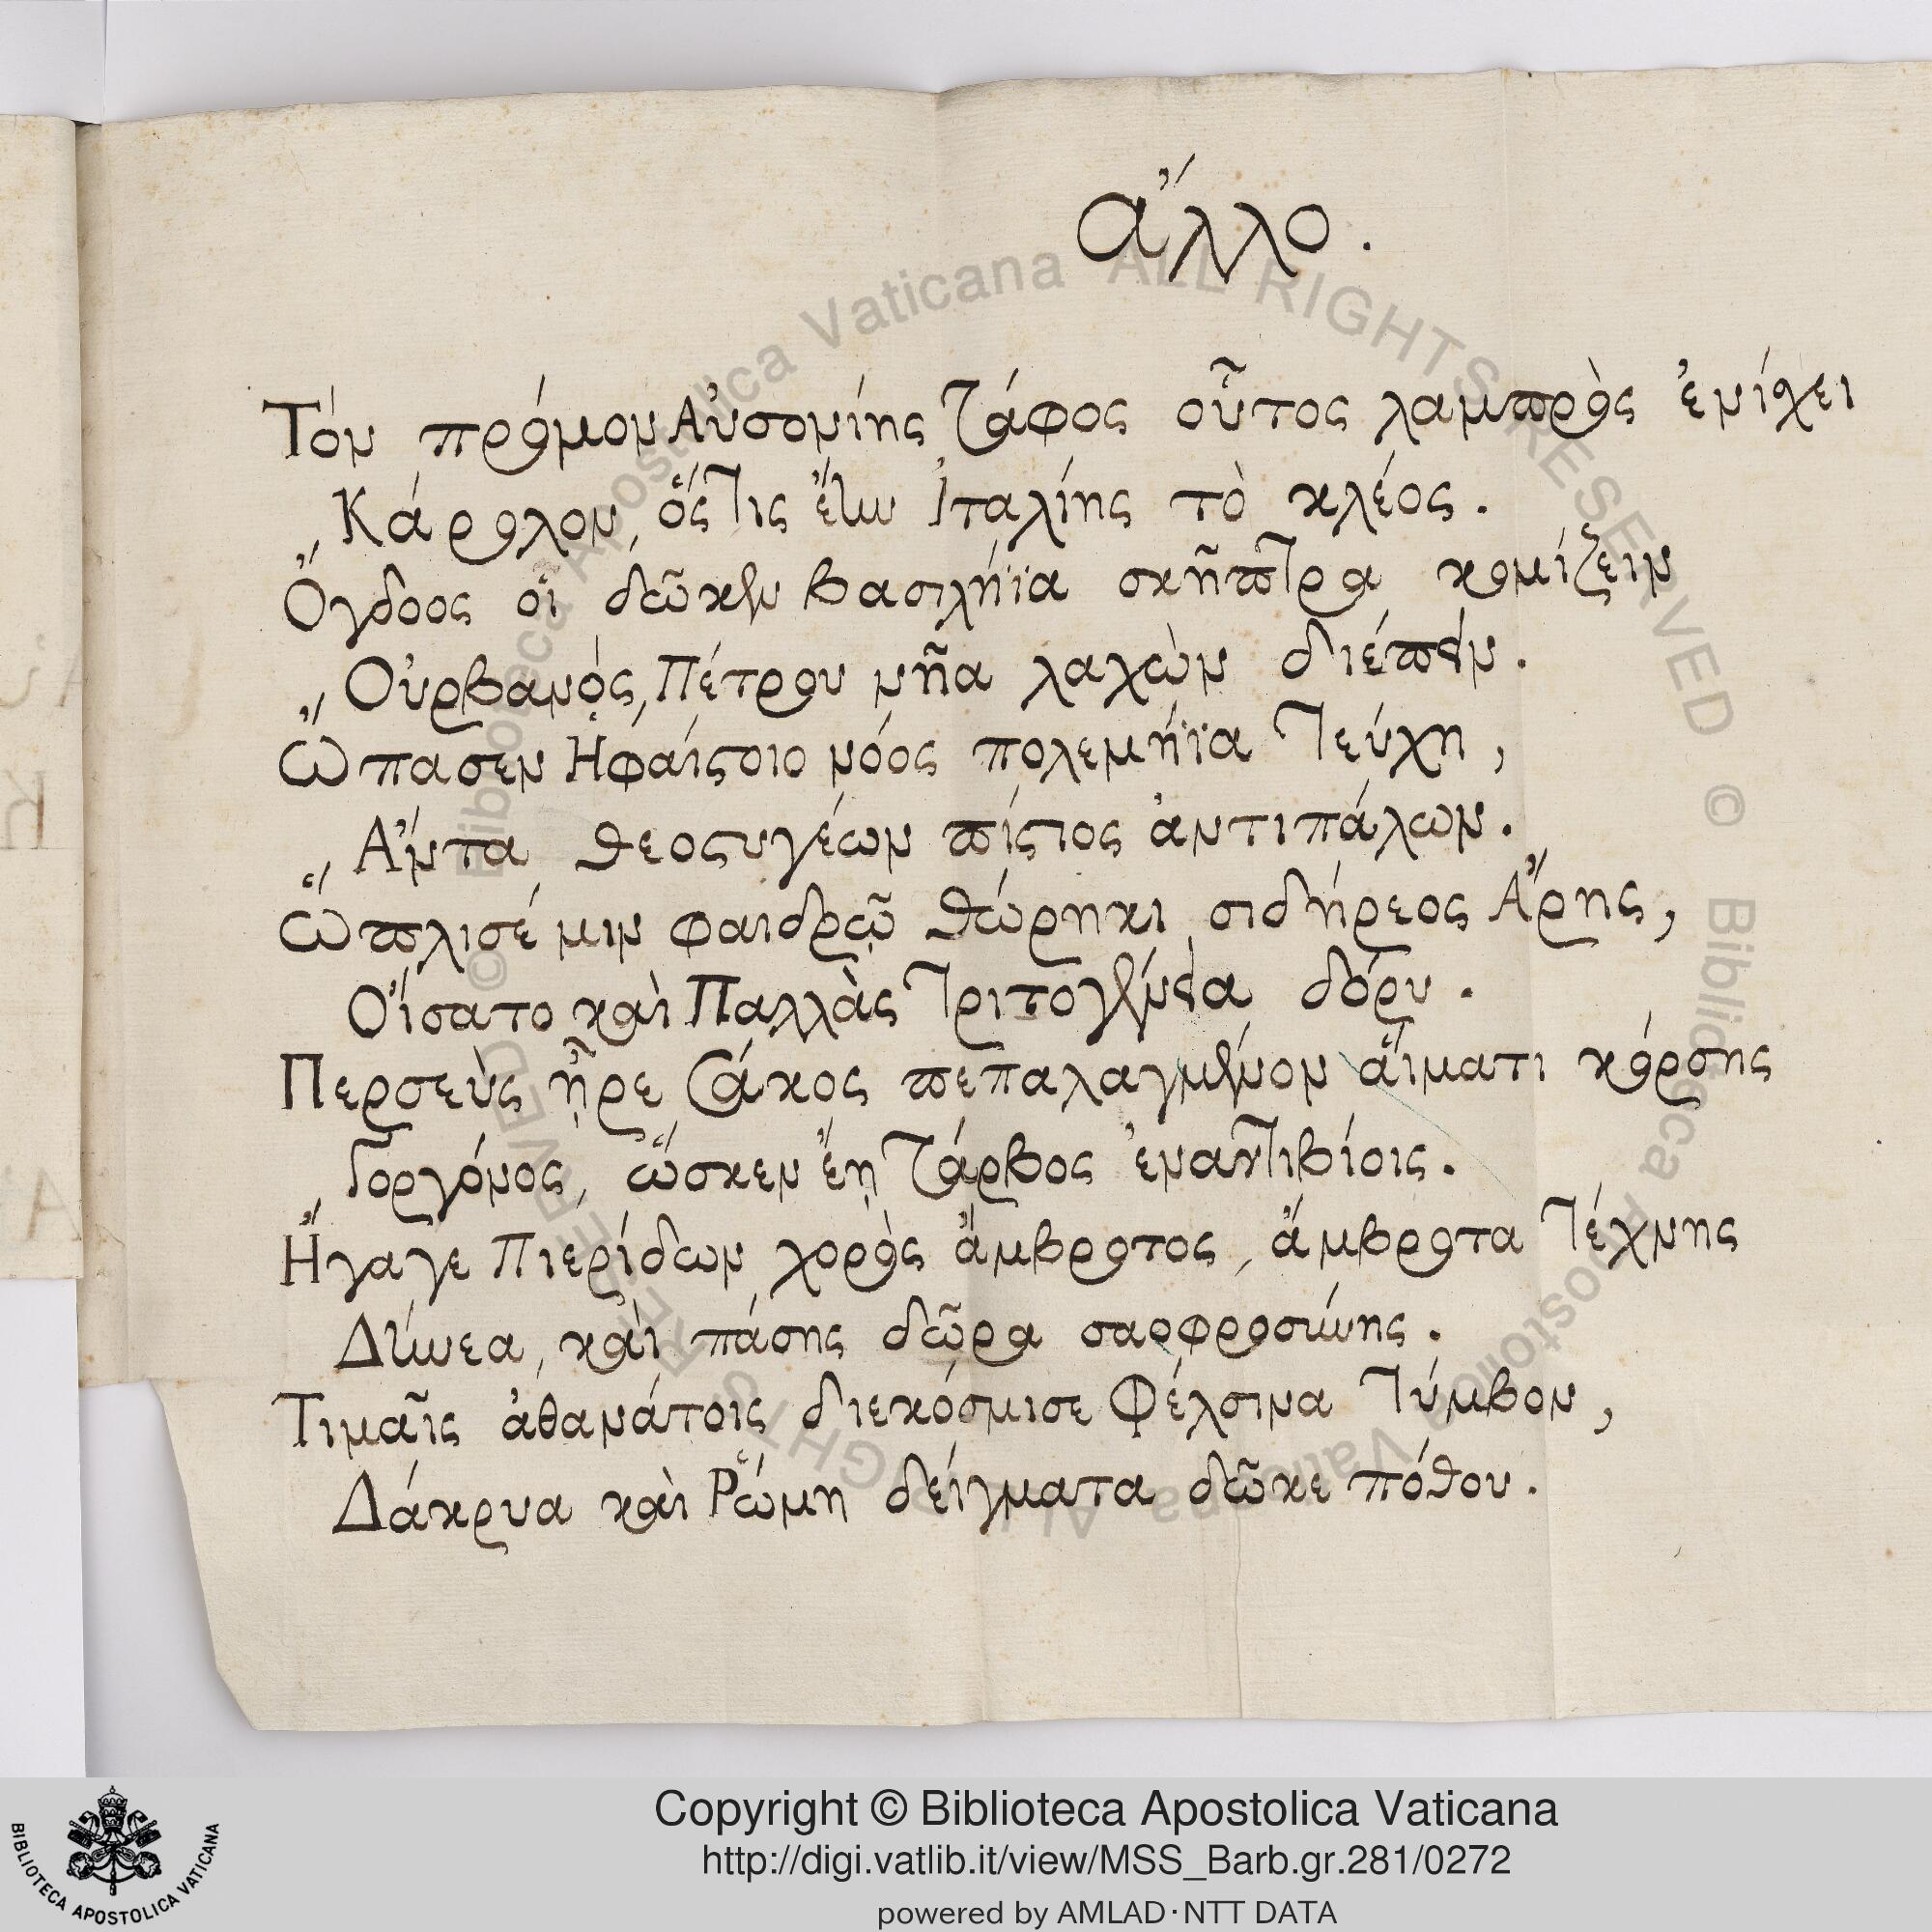 ἄλλο.
Τόν πρόμον Αὐσονίης τάφος οὗτος λαμπρὸς ἐνίσχει
Κάρολον, ὅςτις ἔην Ἰταλίης τὸ κλέος.
Ὄγδοος οἱ δῶκεν βασιλήϊα σκῆπτρα κομίζειν
Οὐρβανός, Πέτρου νῆα λαχὼν διέπειν.
Ὤπασεν Ἡφαίστοιο νόος πολεμήϊα τεύχη,
Ἄντα θεοστυγέων πίστιος ἀντιπάλων.
Ὥπλισέ μιν φαιδρῷ θώρηκι σιδήρεος Ἄρης,
Οἴσατο καὶ Παλλὰς Τριτογένεια δόρυ.
Περσεὺς ᾖρε σάκος πεπαλαγμένον αἵματι κόρσης
Γοργόνος, ὥσκεν ἔῃ τάρβος ἐναντιβίοις.
Ἤγαγε Πιερίδων χορὸς ἄμβροτος, ἄμβροτα τέχνης
Δήνεα, καὶ πάσης δῶρα σαοφροσύνης.
Τιμαῖς ἀθανάτοις διεκόσμισε Φέλσινα τύμβον,
Δάκρυα καὶ Ῥώμη δείγματα δῶκε πόθου.
Copyright © Biblioteca Apostolica Vaticana
http://digi.vatlib.it/view/MSS_Barb.gr.281/0272
powered by AMLAD·NTT DATA
BIBLIOTECA APOSTOLICA VATICANA
© Biblioteca Apostolica Vaticana ALL RIGHTS RESERVED © Biblioteca Apostolica Vaticana ALL RIGHTS RESERVED